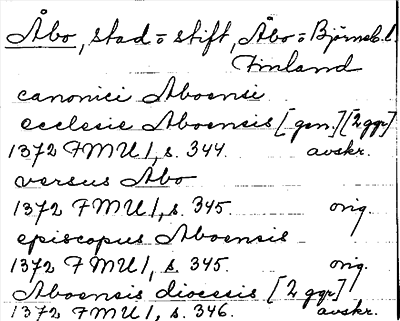 Åbo, stad o stift, Åbo o Björneb. l.
Finland
canonici Aboensi
ecclesie Aboensis [gen.] [2 ggr]
1372 FMU 1, s. 344. avskr.
versus Abo
1372 FMU 1, s. 345. orig.
episcopus Aboensis
1372 FMU 1, s. 345. orig.
Aboensis diocesis [2 ggr]
1372 FMU 1, s. 346. avskr.